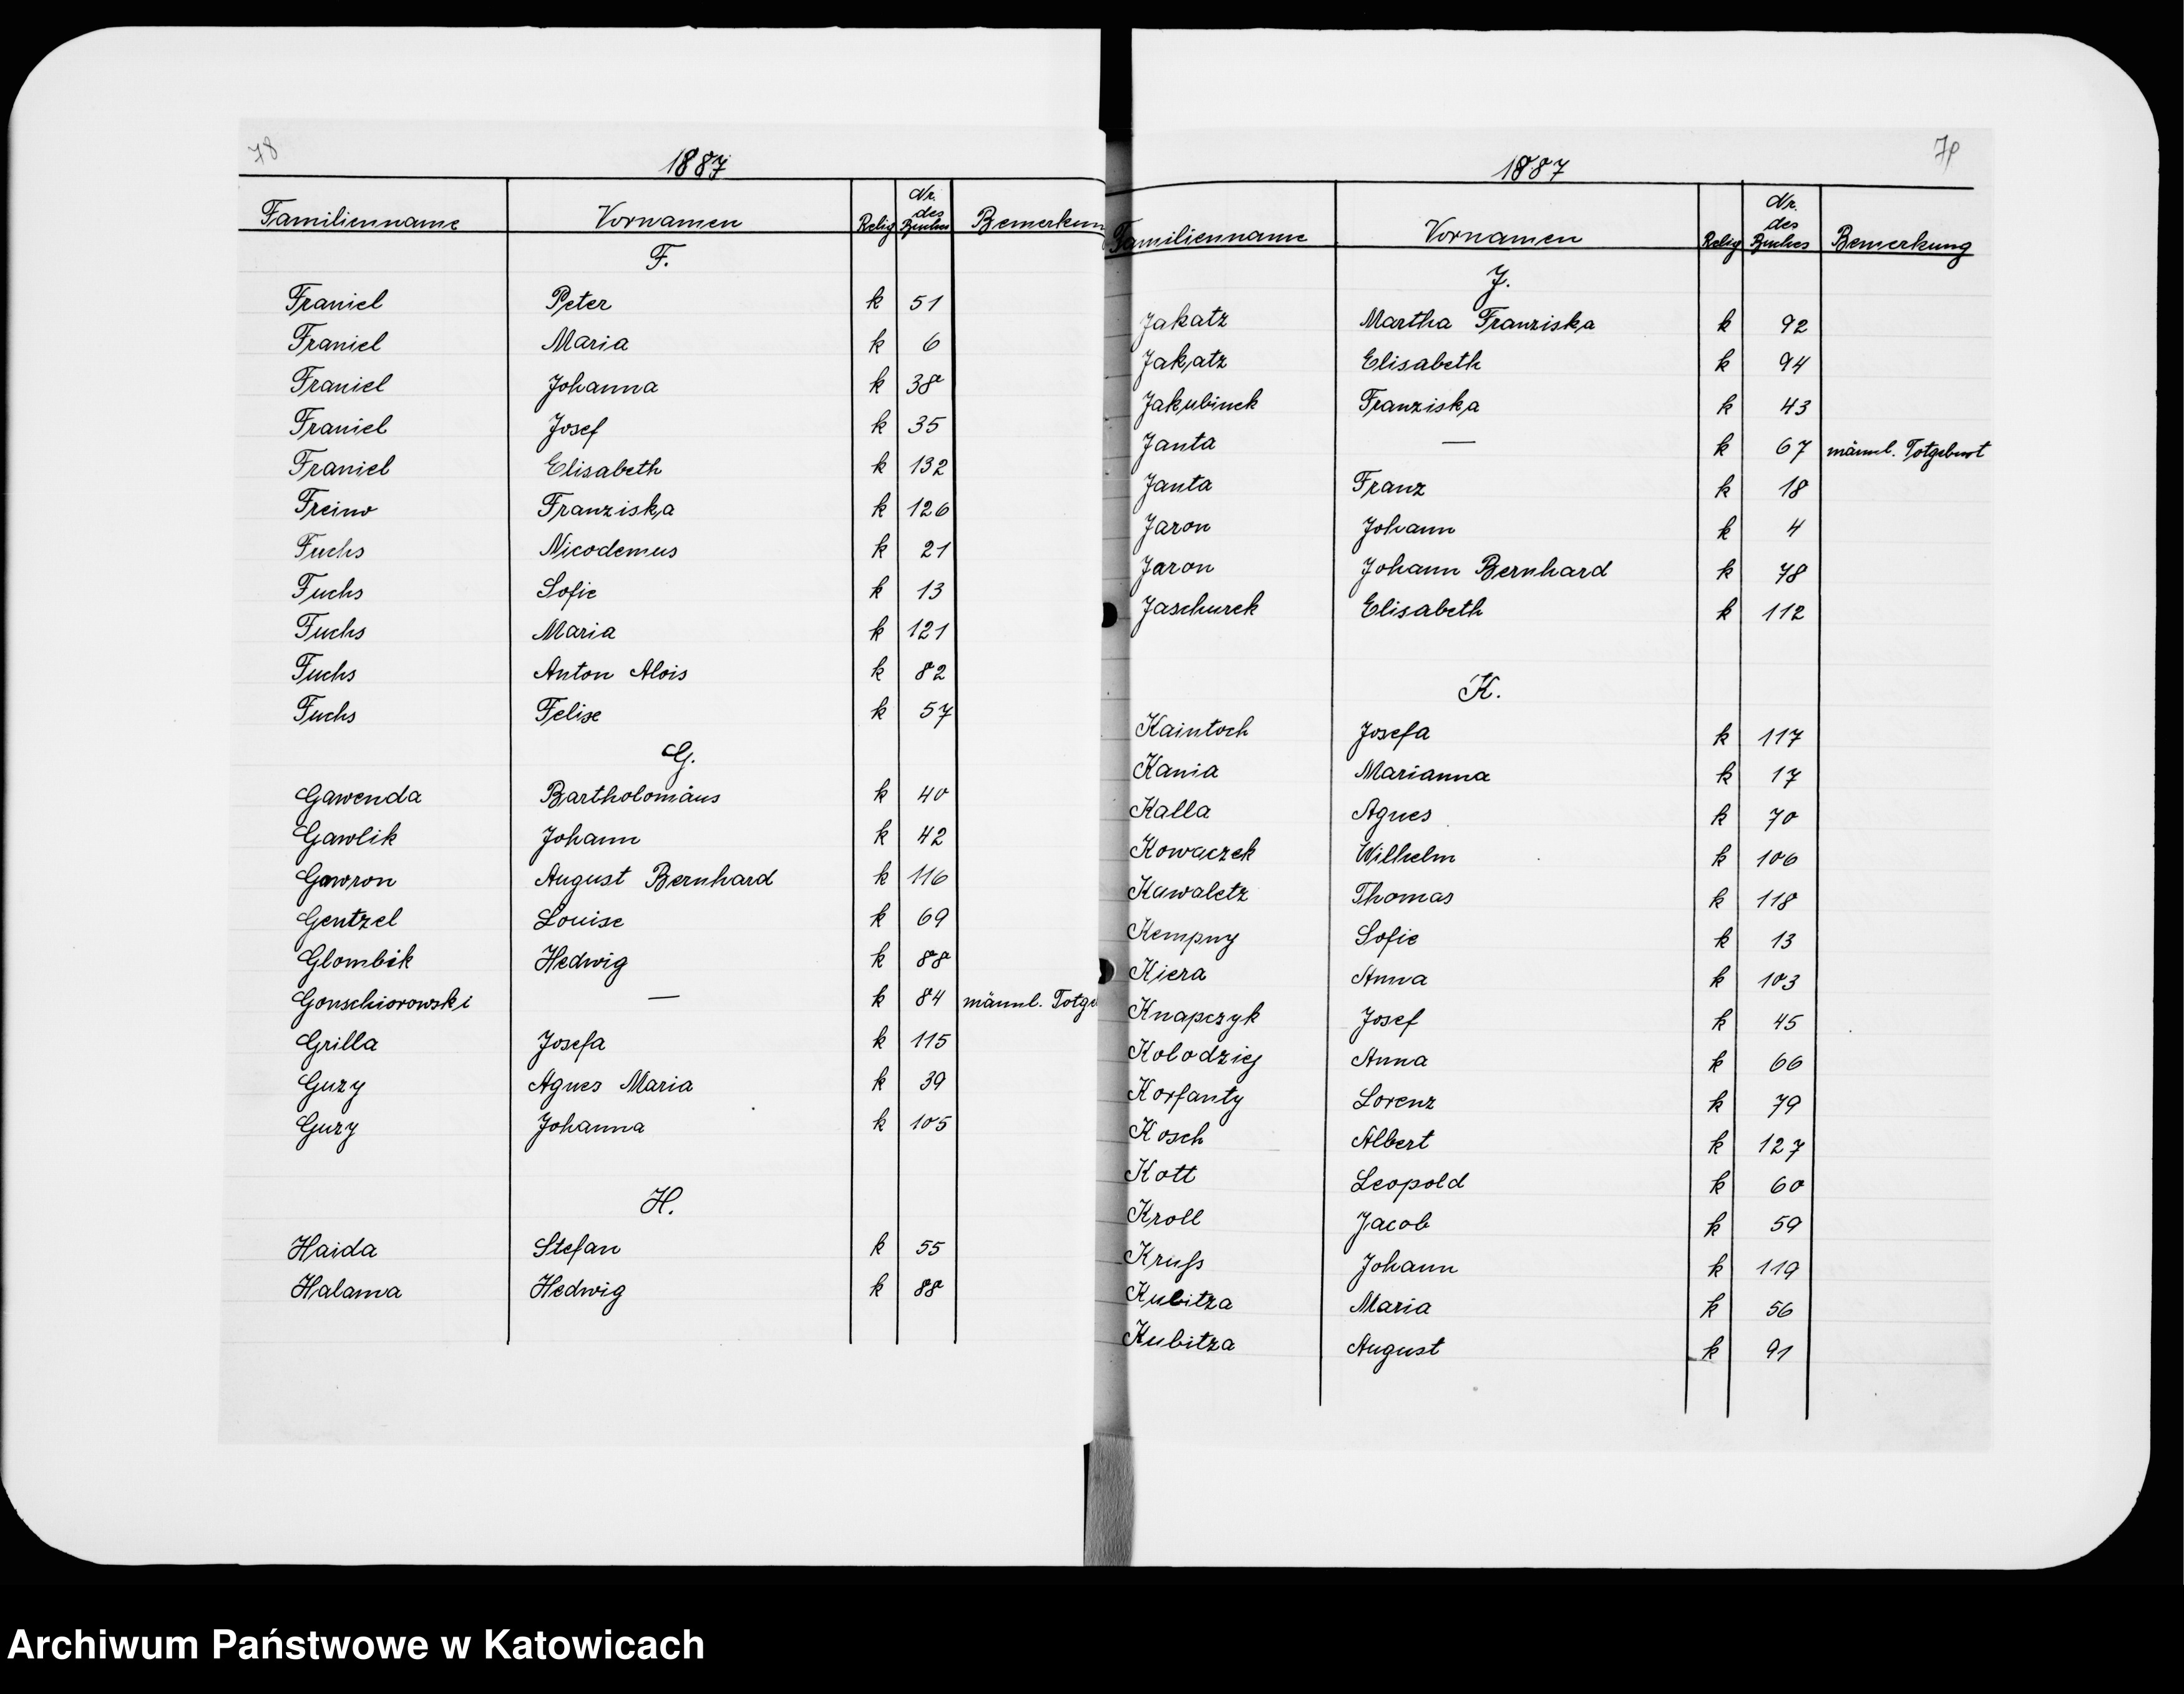 78
1887
Familienname Vornamen Relig Nr. des Buches Bemerkun
F.
Franiel Peter k 51
Franiel Maria k 6
Franiel Johanna k 38
Franiel Josef k 35
Franiel Elisabeth k 132
Freino Franziska k 126
Fuchs Nicodemus k 21
Fuchs Sofie k 13
Fuchs Maria k 121
Fuchs Anton Alois k 82
Fuchs Felise k 57
G.
Gawenda Bartholomäus k 40
Gawlik Johann k 42
Gawron August Bernhard k 116
Gentzel Louise k 69
Glombik Hedwig k 88
Gonschiorowski — k 84 männl. Totge
Grilla Josefa k 115
Guzy Agnes Maria k 39
Guzy Johanna k 105
H.
Haida Stefan k 55
Halama Hedwig k 88
79
1887
Familienname Vornamen Relig Nr. des Buches Bemerkung
J.
Jakatz Martha Franziska k 92
Jakatz Elisabeth k 94
Jakubinek Franziska k 43
Janta — k 67 männl. Totgeburt
Janta Franz k 18
Jaron Johann k 4
Jaron Johann Bernhard k 78
Jaschurek Elisabeth k 112
K.
Kaintoch Josefa k 117
Kania Marianna k 17
Kalla Agnes k 70
Kowaczek Wilhelm k 106
Kawaletz Thomas k 118
Kempny Sofie k 13
Kiera Anna k 103
Knapczyk Josef k 45
Kolodziej Anna k 66
Korfanty Lorenz k 79
Kosch Albert k 127
Kott Leopold k 60
Kroll Jacob k 59
Kruß Johann k 119
Kubitza Maria k 56
Kubitza August k 91
Archiwum Państwowe w Katowicach